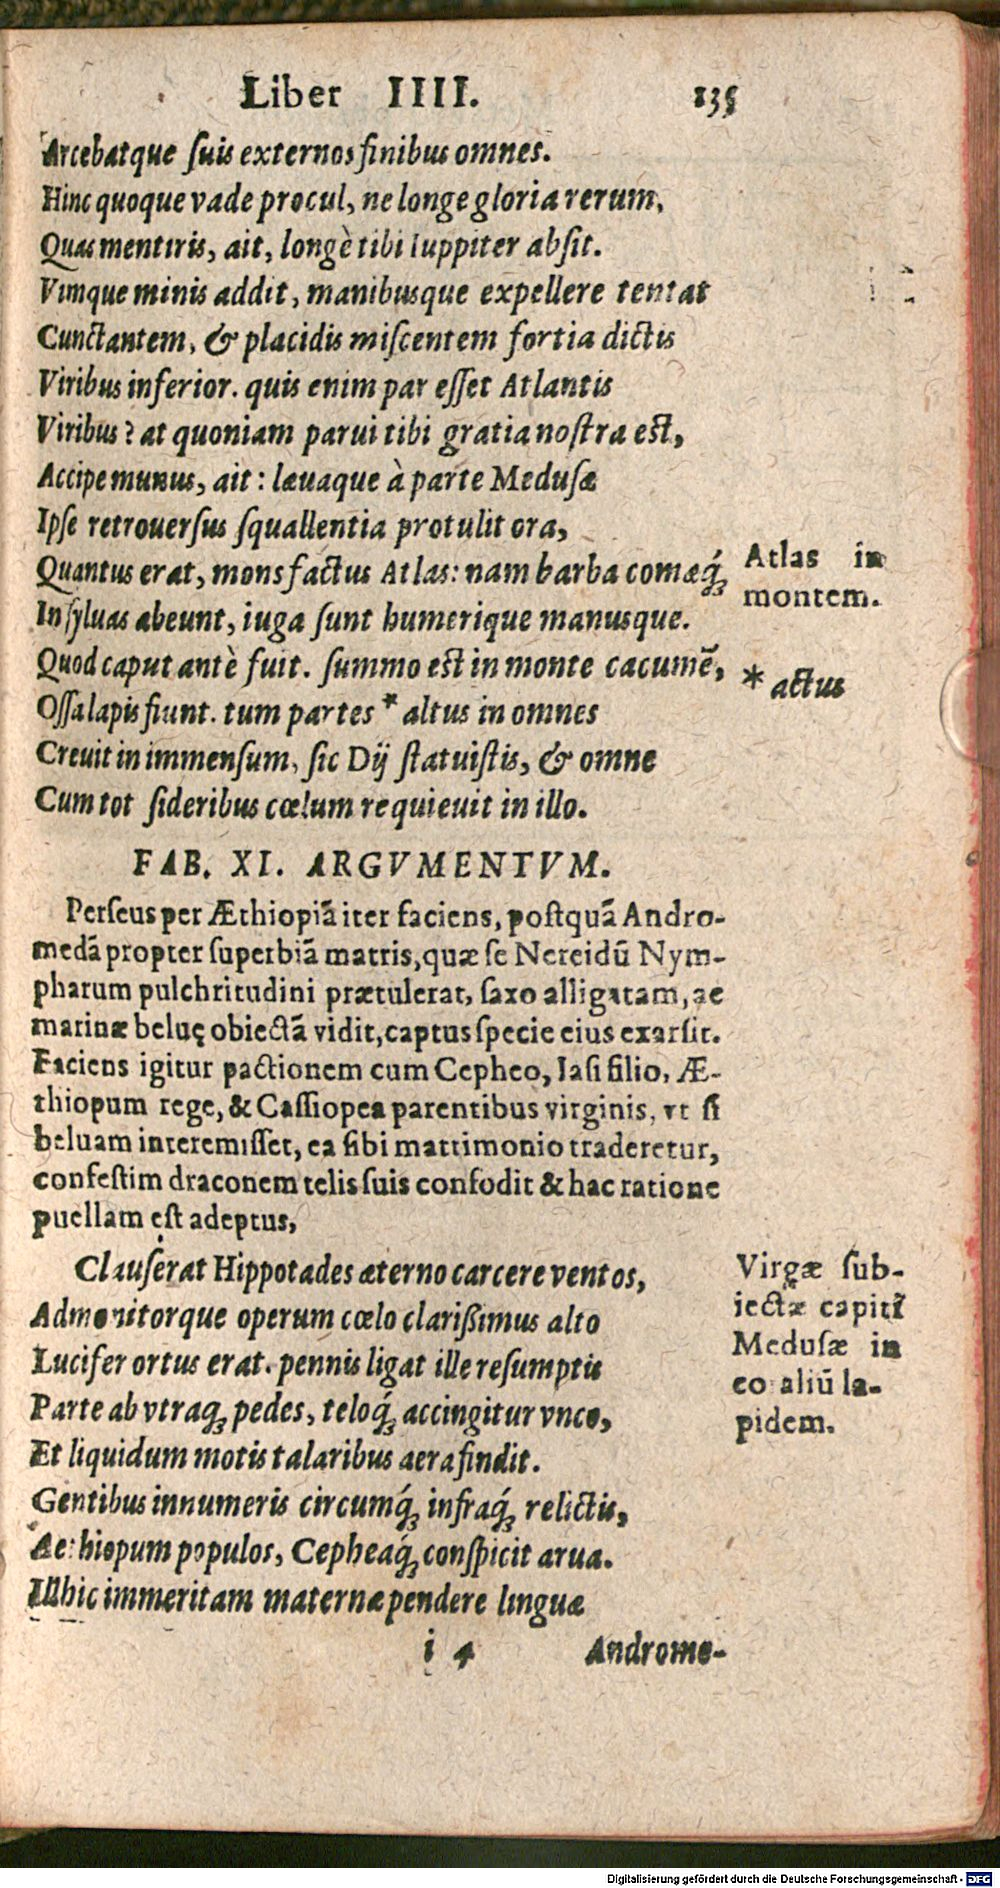 Liber IIII. 135
Arcebatque suis externos finibus omnes.
Hinc quoque vade procul, ne longe gloria rerum,
Quas mentiris, ait, longè tibi Iuppiter absit.
Vimque minis addit, manibusque expellere tentat
Cunctantem, & placidis miscentem fortia dictis
Viribus inferior. quis enim par esset Atlantis
Viribus? at quoniam parui tibi gratia nostra est,
Accipe munus, ait: læuaque à parte Medusæ
Ipse retrouersus squallentia protulit ora,
Quantus erat, mons factus Atlas: nam barba comæq́;
In syluas abeunt, iuga sunt humerique manusque.
Quod caput antè fuit. summo est in monte cacumē,
Ossa lapis fiunt. tum partes * altus in omnes
Creuit in immensum, sic Dij statuistis, & omne
Cum tot sideribus cœlum requieuit in illo.
Atlas in
montem.
* actus
FAB. XI. ARGVMENTVM.
Perseus per Æthiopiã iter faciens, postquã Andro-
medã propter superbiã matris, quæ se Nereidũ Nym-
pharum pulchritudini prætulerat, saxo alligatam, ac
marinæ beluę obiectã vidit, captus specie eius exarsit.
Faciens igitur pactionem cum Cepheo, Iasi filio, Æ-
thiopum rege, & Cassiopea parentibus virginis, vt si
beluam interemisset, ea sibi matrimonio traderetur,
confestim draconem telis suis confodit & hac ratione
puellam est adeptus,
Clauserat Hippotades æterno carcere ventos,
Admonitorque operum cœlo clarißimus alto
Lucifer ortus erat. pennis ligat ille resumptis
Parte ab vtraq; pedes, teloq́; accingitur vnco,
Et liquidum motis talaribus aera findit.
Gentibus innumeris circumq́; infraq́; relictis,
Aethiopum populos, Cepheaq́; conspicit arua.
Illhic immeritam maternæ pendere linguæ
Virgæ sub-
iectæ capiti
Medusæ in
eo aliũ la-
pidem.
i 4 Androme-
Digitalisierung gefördert durch die Deutsche Forschungsgemeinschaft - DFG